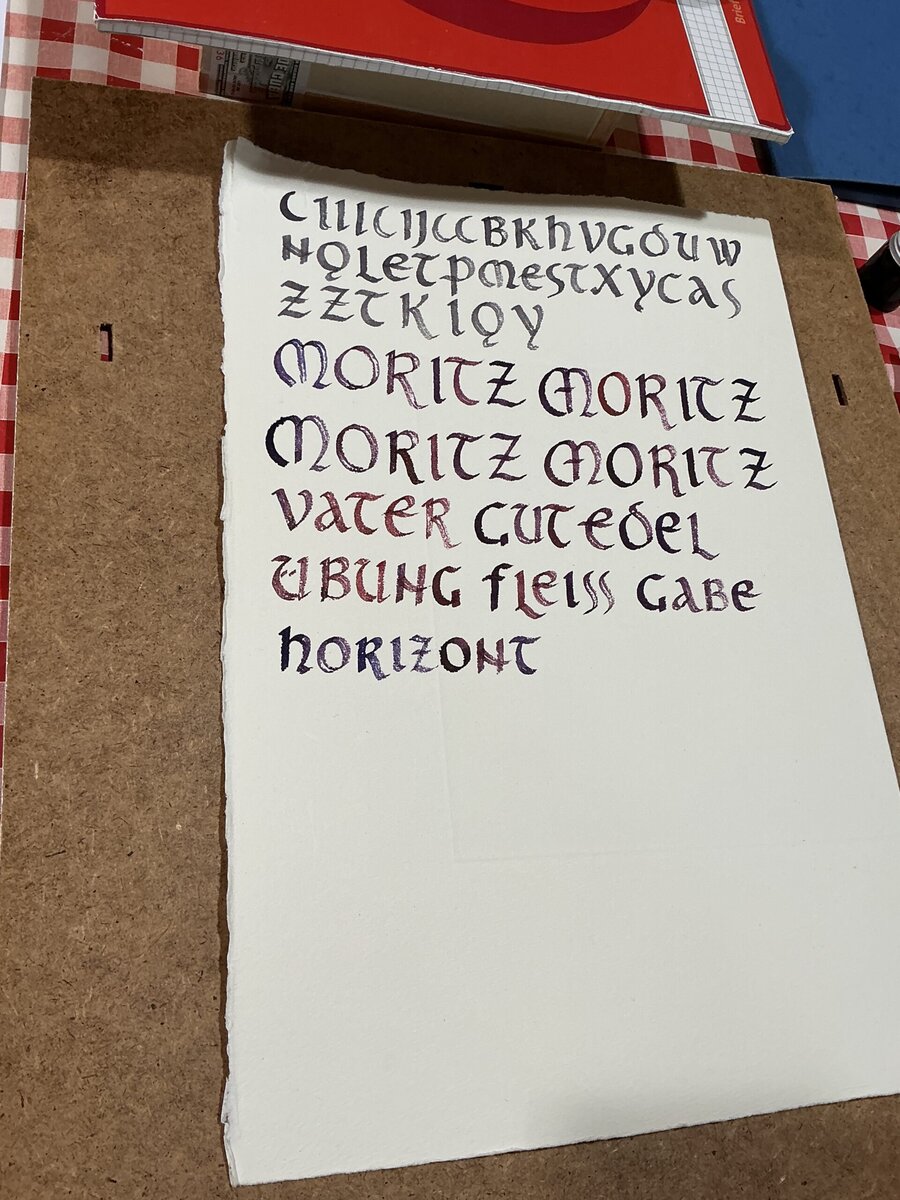 Brief
CIIICIJCCBKhVGδUW
NQLETPMESTXYCAS
ZZTKIQY
MORITZ MORITZ
MORITZ MORITZ
VATER GUTEDEL
ÜBUNG FLEISS GABE
HORIZONT